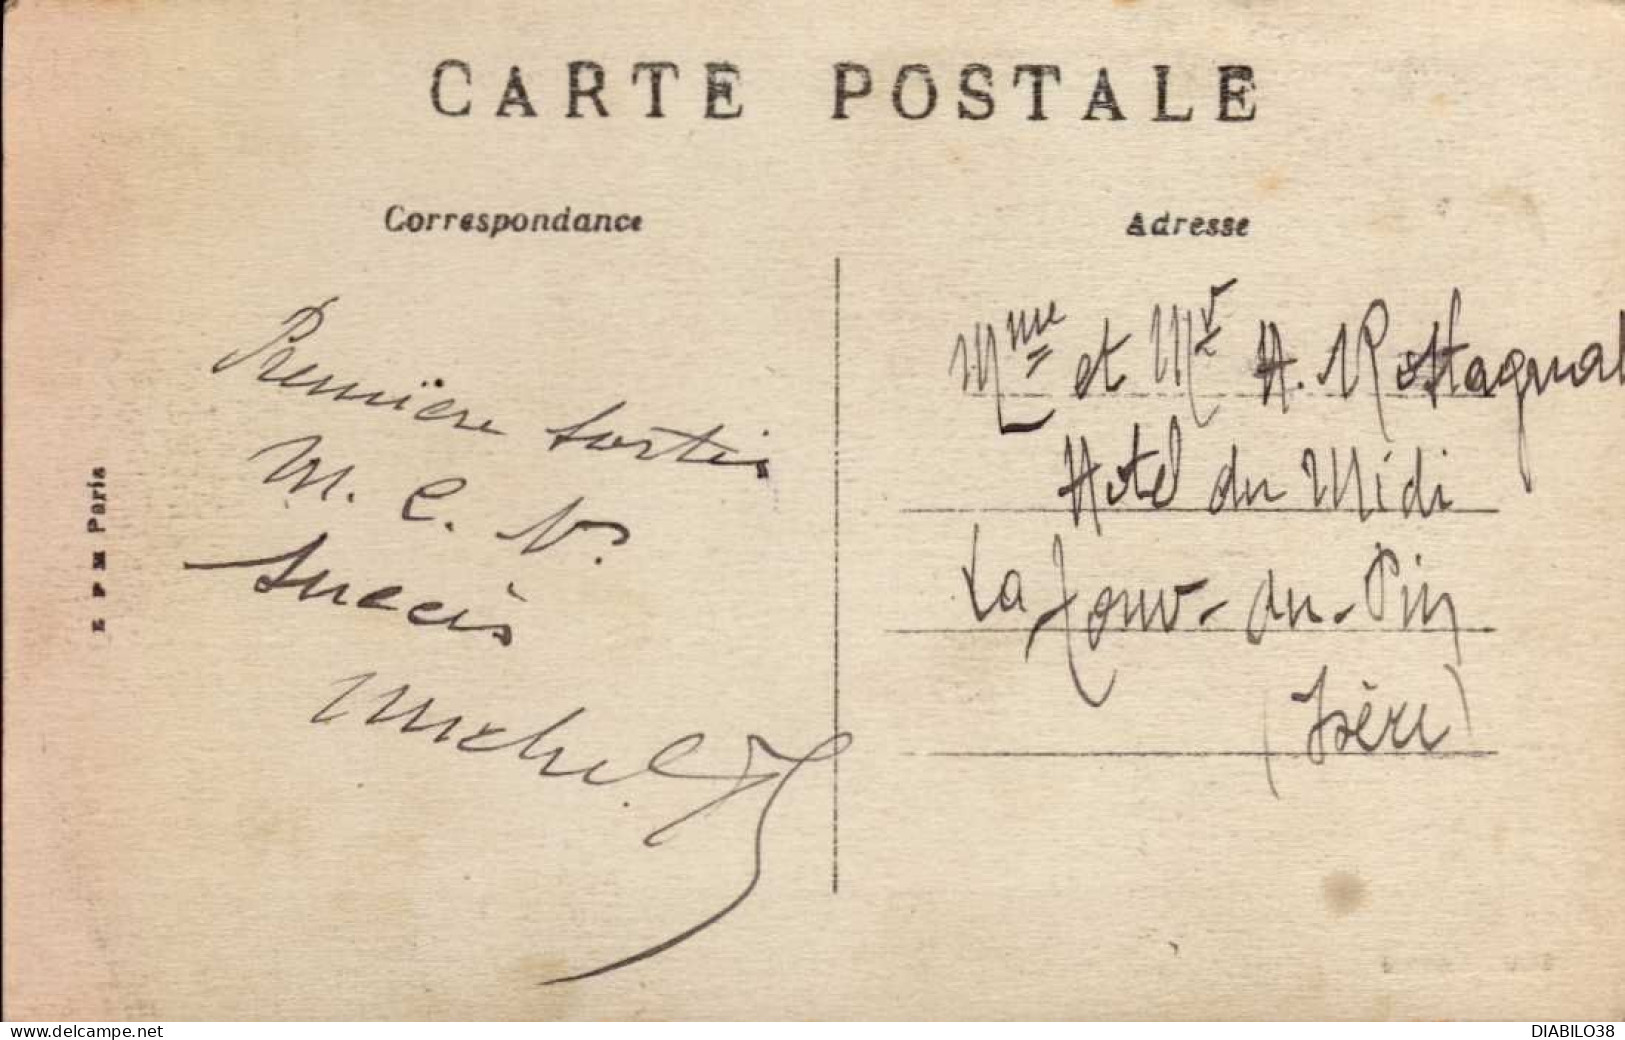 CARTE POSTALE
Correspondance
Adresse
Première sortie
M. C. V.
Succès
Michel
Mme et Mr A. Rostagnat
Hotel du Midi
La Tour-du-Pin
(Isère)
E P M Paris
www.delcampe.net
DIABILO38